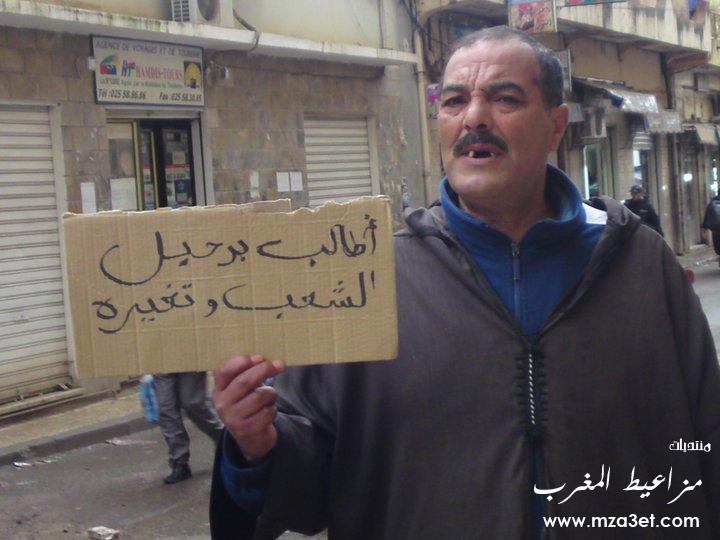 AGENCE DE VOYAGES ET DE TOURISME
HAMDIS-TOURS
Tél : 025 58.96.86
Fax : 025 58.30.85
أطالب برحيل
الشعب وتغييره
منتديات
مزاعيط المغرب
www.mza3et.com